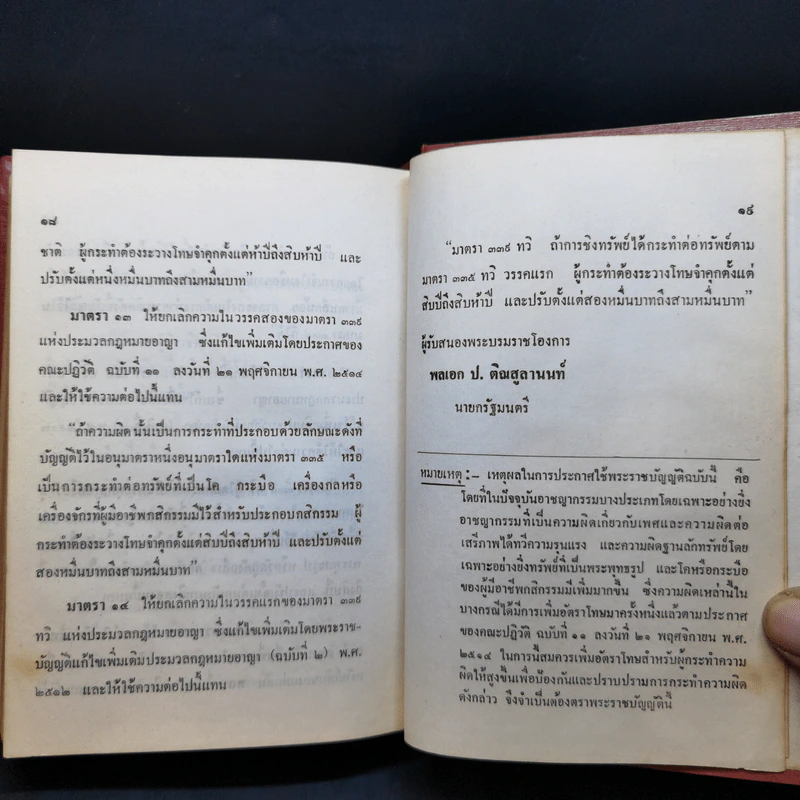 ๑๘
ชาติ ผู้กระทำต้องระวางโทษจำคุกตั้งแต่ห้าปีถึงสิบห้าปี และ
ปรับตั้งแต่หนึ่งหมื่นบาทถึงสามหมื่นบาท”
มาตรา ๑๓ ให้ยกเลิกความในวรรคสองของมาตรา ๓๓๙
แห่งประมวลกฎหมายอาญา ซึ่งแก้ไขเพิ่มเติมโดยประกาศของ
คณะปฏิวัติ ฉบับที่ ๑๑ ลงวันที่ ๒๑ พฤศจิกายน พ.ศ. ๒๕๑๔
และให้ใช้ความต่อไปนี้แทน
“ถ้าความผิดนั้นเป็นการกระทำที่ประกอบด้วยลักษณะดังที่
บัญญัติไว้ในอนุมาตราหนึ่งอนุมาตราใดแห่งมาตรา ๓๓๕ หรือ
เป็นการกระทำต่อทรัพย์ที่เป็นโค กระบือ เครื่องกลหรือ
เครื่องจักรที่ผู้มีอาชีพกสิกรรมมีไว้สำหรับประกอบกสิกรรม ผู้
กระทำต้องระวางโทษจำคุกตั้งแต่สิบปีถึงสิบห้าปี และปรับตั้งแต่
สองหมื่นบาทถึงสามหมื่นบาท”
มาตรา ๑๔ ให้ยกเลิกความในวรรคแรกของมาตรา ๓๓๙
ทวิ แห่งประมวลกฎหมายอาญา ซึ่งแก้ไขเพิ่มเติมโดยพระราช-
บัญญัติแก้ไขเพิ่มเติมประมวลกฎหมายอาญา (ฉบับที่ ๒) พ.ศ.
๒๕๑๒ และให้ใช้ความต่อไปนี้แทน
๑๙
“มาตรา ๓๓๙ ทวิ ถ้าการชิงทรัพย์ได้กระทำต่อทรัพย์ตาม
มาตรา ๓๓๕ ทวิ วรรคแรก ผู้กระทำต้องระวางโทษจำคุกตั้งแต่
สิบปีถึงสิบห้าปี และปรับตั้งแต่สองหมื่นบาทถึงสามหมื่นบาท”
ผู้รับสนองพระบรมราชโองการ
พลเอก ป. ติณสูลานนท์
นายกรัฐมนตรี
หมายเหตุ:- เหตุผลในการประกาศใช้พระราชบัญญัติฉบับนี้ คือ
โดยที่ในปัจจุบันอาชญากรรมบางประเภทโดยเฉพาะอย่างยิ่ง
อาชญากรรมที่เป็นความผิดเกี่ยวกับเพศและความผิดต่อ
เสรีภาพได้ทวีความรุนแรง และความผิดฐานลักทรัพย์โดย
เฉพาะอย่างยิ่งทรัพย์ที่เป็นพระพุทธรูป และโคหรือกระบือ
ของผู้มีอาชีพกสิกรรมมีเพิ่มมากขึ้น ซึ่งความผิดเหล่านี้ใน
บางกรณีได้มีการเพิ่มอัตราโทษมาครั้งหนึ่งแล้วตามประกาศ
ของคณะปฏิวัติ ฉบับที่ ๑๑ ลงวันที่ ๒๑ พฤศจิกายน พ.ศ.
๒๕๑๔ ในการนี้สมควรเพิ่มอัตราโทษสำหรับผู้กระทำความ
ผิดให้สูงขึ้นเพื่อป้องกันและปราบปรามการกระทำความผิด
ดังกล่าว จึงจำเป็นต้องตราพระราชบัญญัตินี้